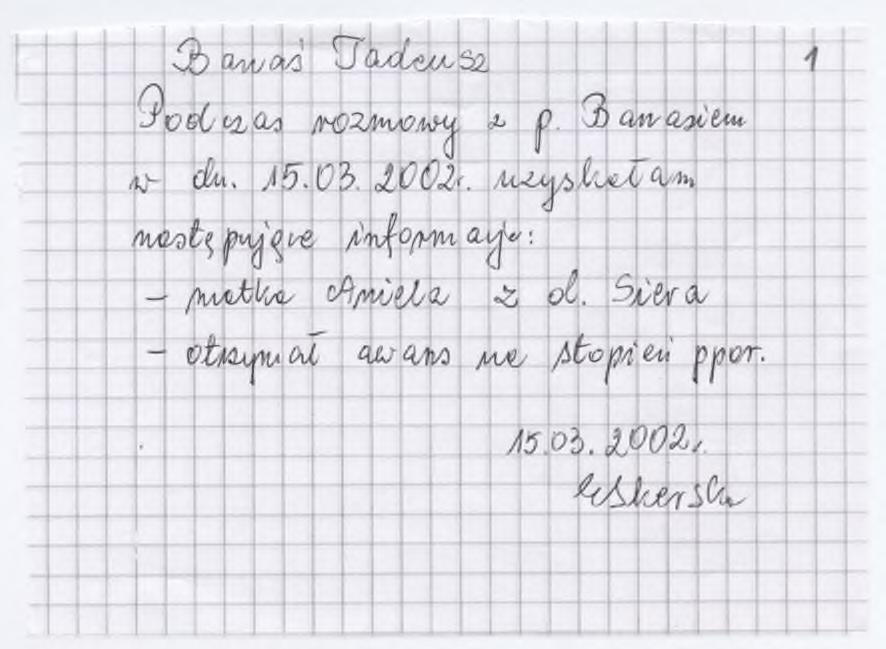 Banaś Tadeusz 1
Podczas rozmowy z p. Banasiem
w dn. 15.03.2002r. uzyskałam
następujące informacje:
- matka Aniela z d. Siera
- otrzymał awans na stopień ppor.
15.03.2002r.